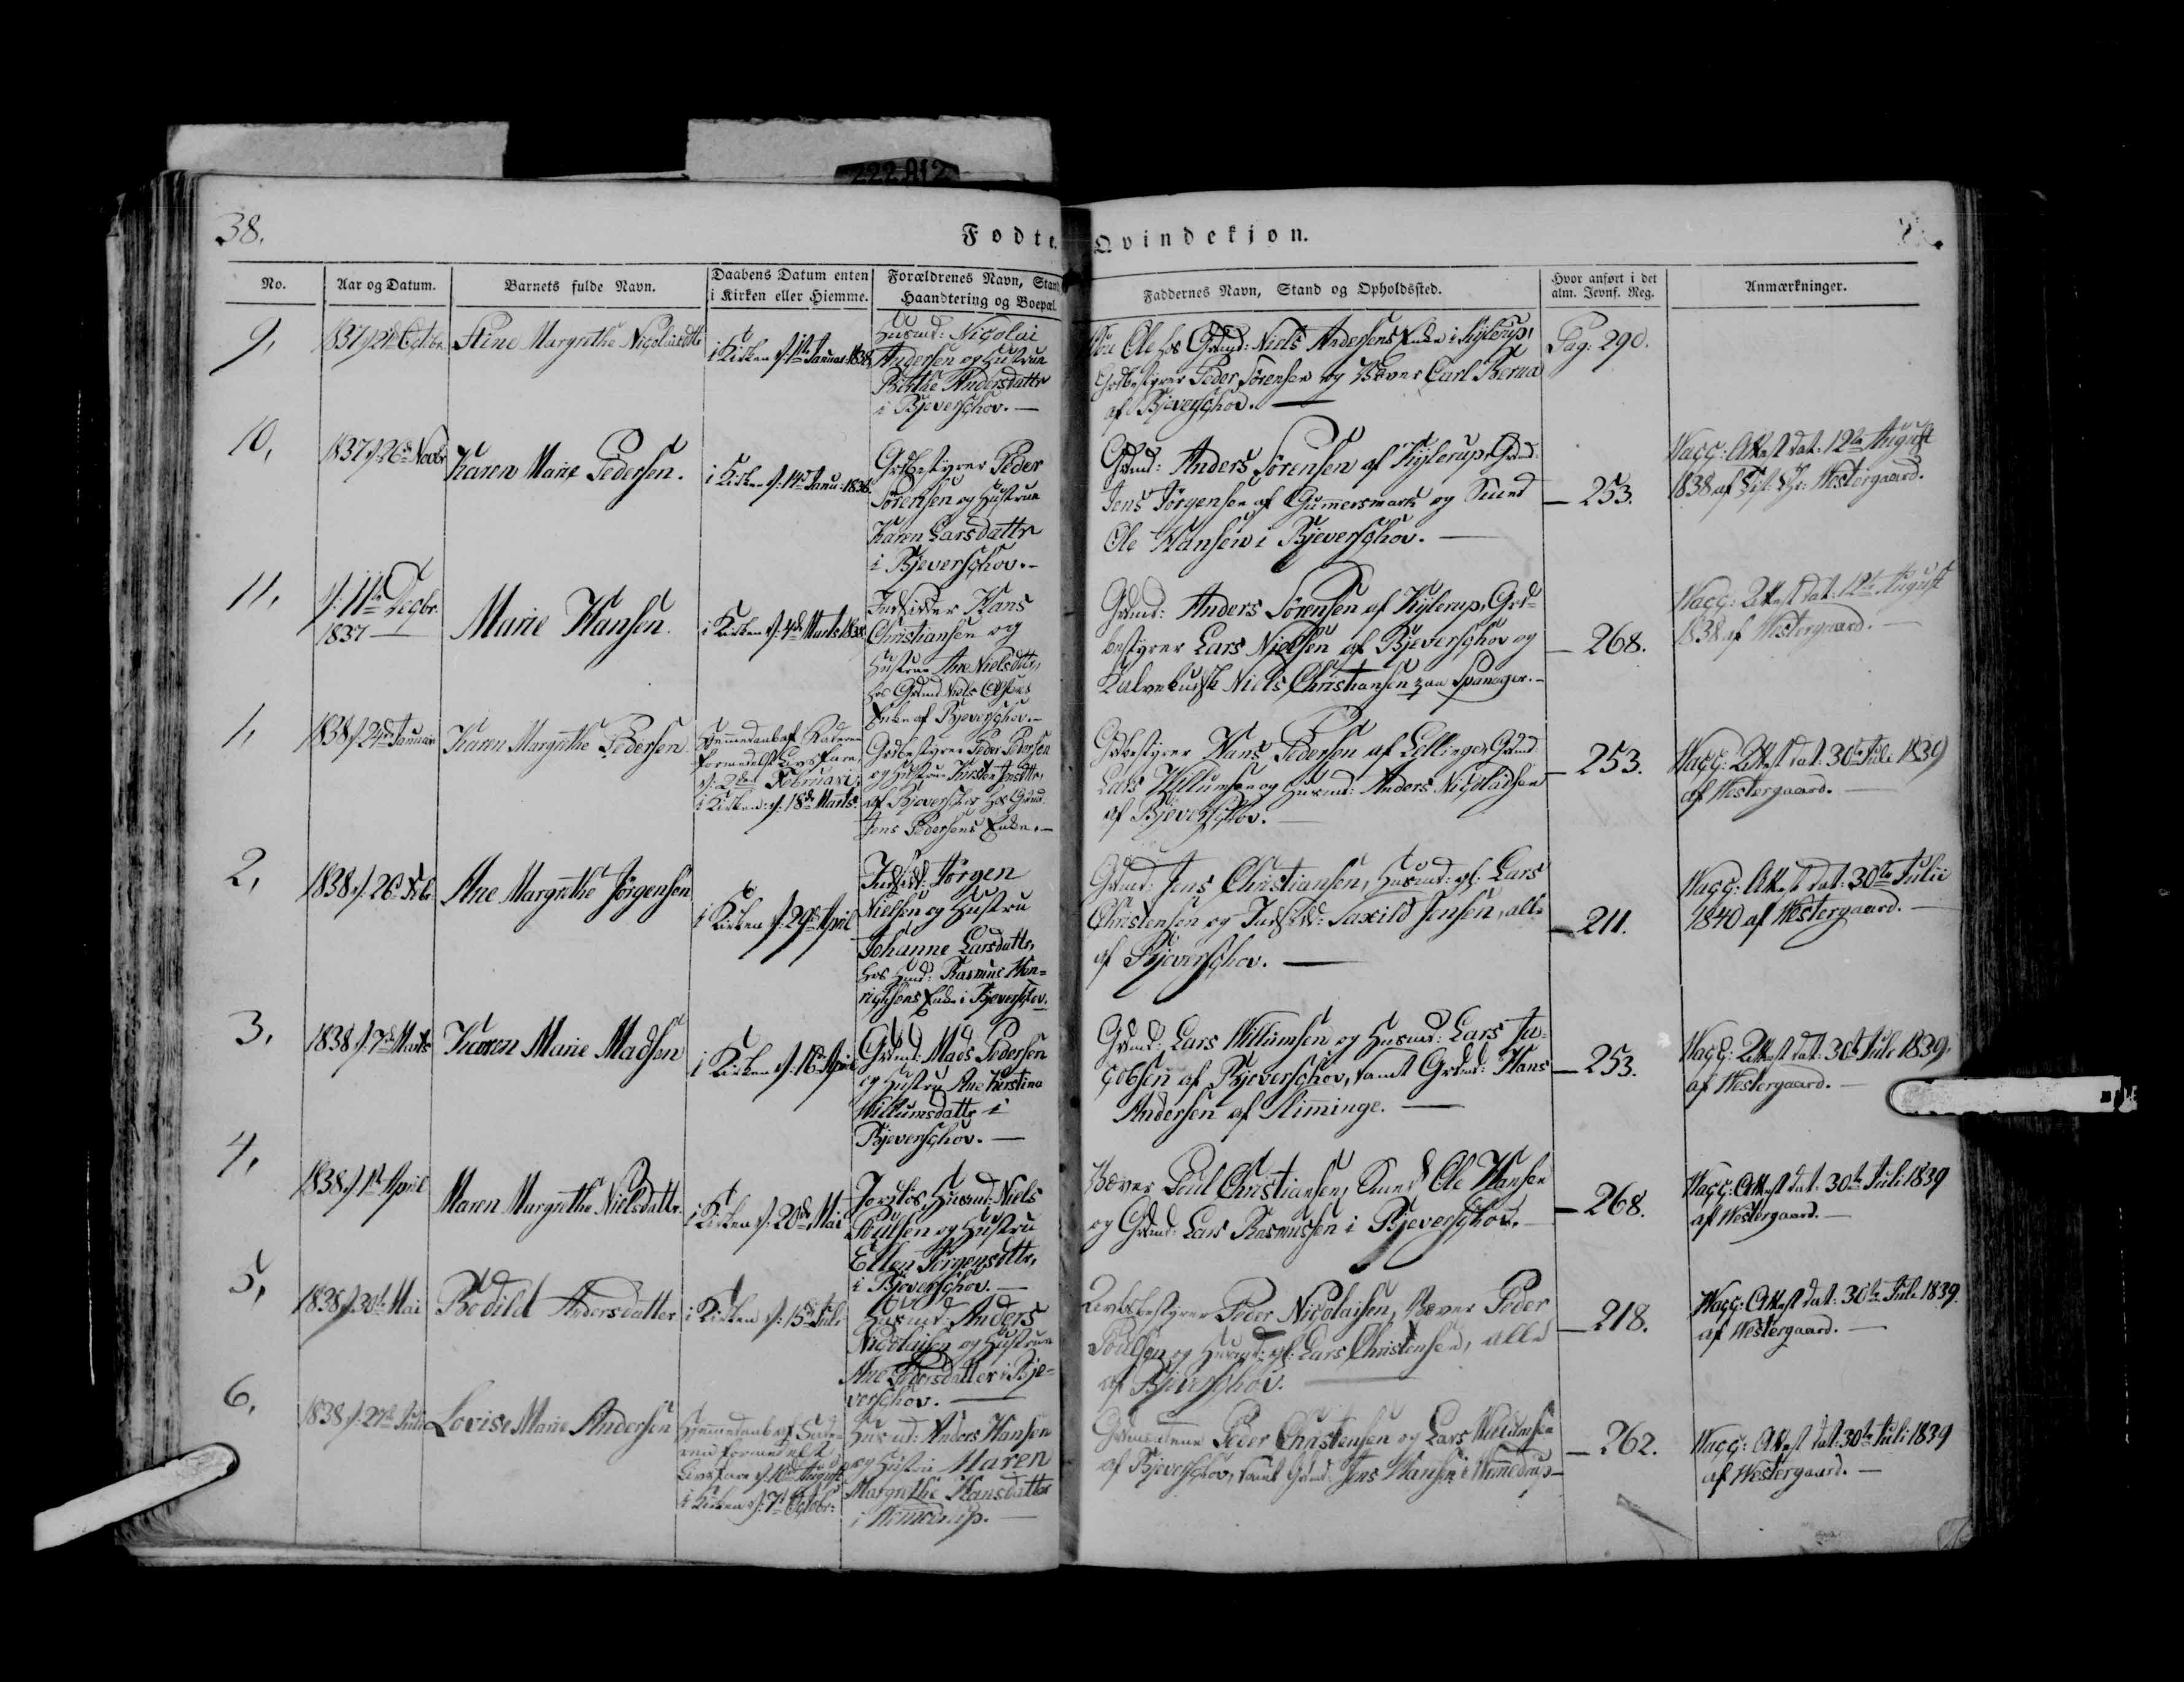 222.812
38.
Fødte.
Qvindekjøn.
No.
Aar og Datum.
Barnets fulde Navn.
Daabens Datum enten
i Kirken eller Hiemme.
Forældrenes Navn, Stand
Haandtering og Boepæl.
Faddernes Navn, Stand og Opholdssted.
Hvor anført i det
alm. Jevnf. Reg.
Anmærkninger.
9,
1837 d: Octbr.
Stine Margrethe Nicolaidttr
i Kirken d: Januar 1838.
Huusmd: Nicolai
Andersen og Hustrue
Birthe Andersdatter
i Bjeverschov. —
Ole hos Grdmd: Niels Andersens Enke i Kylerup,
Grdbestyrer Peder Sørensen og Væver Carl Berua
af Bjeverschov. —
Pag: 290.
10,
1837 d: 26de Novbr
Karen Marie Pedersen.
i Kirken d: 14de Janu: 1838
Grdbestyrer Peder
Sørensen og Hustrue
Karen Larsdatter
i Bjeverschov. —
Grdmd: Anders Sørensen af Kylerup, Grdmd:
Jens Jørgensen af Gummersmark og Smed
Ole Hansen i Bjeverschov. —
— 253.
Vacc: Attest dat: 12te August
1838 af Westergaard.
11,
d: 11te Decbr.
1837 —
Marie Hansen.
i Kirken d: 4de Marts 1838
Indsidder Hans
Christiansen og
Hustrue Ane Nielsdttr,
hos Grdmd Niels Olsens
Enke af Bjeverschov. —
Grdmd: Anders Sørensen af Kylerup, Grd-
bestyrer Lars Nielsen af Bjeverschov og
Niels Christiansen paa Spanager. —
— 268.
Vacc: Attest dat: 12te August
1838 af Westergaard. —
1,
1838 d: 24de Januar
Karen Margrethe Pedersen
Hjemmedøbt af Faderen
formedelst Livsfare,
d: 2den Februari;
i Kirken: d: 18de Marts.
Grdbestyrer Peder Pedersen
og Hustrue Kirsten Jensdttr,
af Bjeverschov hos Grdmd
Jens Pedersens Enke. —
Grdbestyrer Hans Pedersen af Lellinge, Grdmd
Lars Willumsen og Huusmd: Anders Nicolaisen
af Bjeverschov. —
— 253.
Vacc: Attest dat: 30te Juli 1839
af Westergaard. —
2,
1838 d: 26de Feb:
Ane Margrethe Jørgensen
i Kirken d: 29de April
Indsidd: Jørgen
Nielsen og Hustru
Johanne Larsdatter,
hos Hmd: Rasmus Hen-
richsens Enke i Bjeverschov.
Grdmd: Jens Christiansen, Huusmd: gl: Lars
Christensen og Indsidd: Saxild Jensen, alle
af Bjeverschov. —
— 211.
Vacc: Attest dat: 30te Julii
1840 af Westergaard. —
3,
1838 d: 7de Marts
Karen Marie Madsen
i Kirken d: 16de April
Grdmd: Mads Pedersen
og Hustru Ane Kirstine
Willumsdatter i
Bjeverschov. —
Grdmd: Lars Willumsen og Huusmd: Lars Ja-
cobsen af Bjeverschov, samt Grdmd: Hans
Andersen af Slimminge. —
— 253.
Vacc: Attest dat: 30te Juli 1839.
af Westergaard. —
4,
1838 d: 1st April
Maren Margrethe Nielsdatter.
i Kirken d: 20de Mai
Jordløs Huusmd: Niels
Poulsen og Hustru
Ellen Jørgensdttr,
i Bjeverschov. —
Væver Poul Christiansen, Smed Ole Hansen
og Grdmd: Lars Rasmussen i Bjeverschov. —
— 268.
Vacc: Attest dat: 30te Juli 1839
af Westergaard. —
5,
1838 d: 30te Mai
Bodild Andersdatter
i Kirken d: 15de Juli
Huusmd: Anders
Nicolaisen og Hustrue
Ane Pedersdatter i Bje-
verschov. —
Peder Nicolaisen, Væver Peder
Poulsen og Huusmd: gl: Lars Christensen, alle
af Bjeverschov. —
— 218.
Vacc: Attest dat: 30te Juli 1839.
af Westergaard. —
6,
1838 d: 27de Julii
Lovise Marie Andersen
Hjemmedøbt af
formedelst
Livsfare d: 10de August
i Kirken d: 7de Octobr:
Huusmd: Anders Hansen
og Hustru Maren
Margrethe Hansdatter
i Wemmedrup. —
Grdmændene Peder Christensen og Lars Willumsen
af Bjeverschov, samt Grdmd: Jens Hansen i Wemmedrup —
— 262.
Vacc: Attest dat: 30te Juli 1839
af Westergaard. —